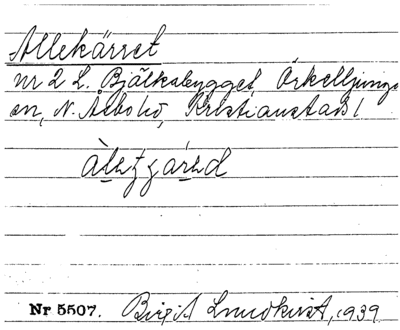 Allekärret
nr 2 L. Bjälkabygget, Örkelljunga
sn, N. Åsbo hd, Kristianstads l
Nr 5507. Birgit Lundkvist, 1939